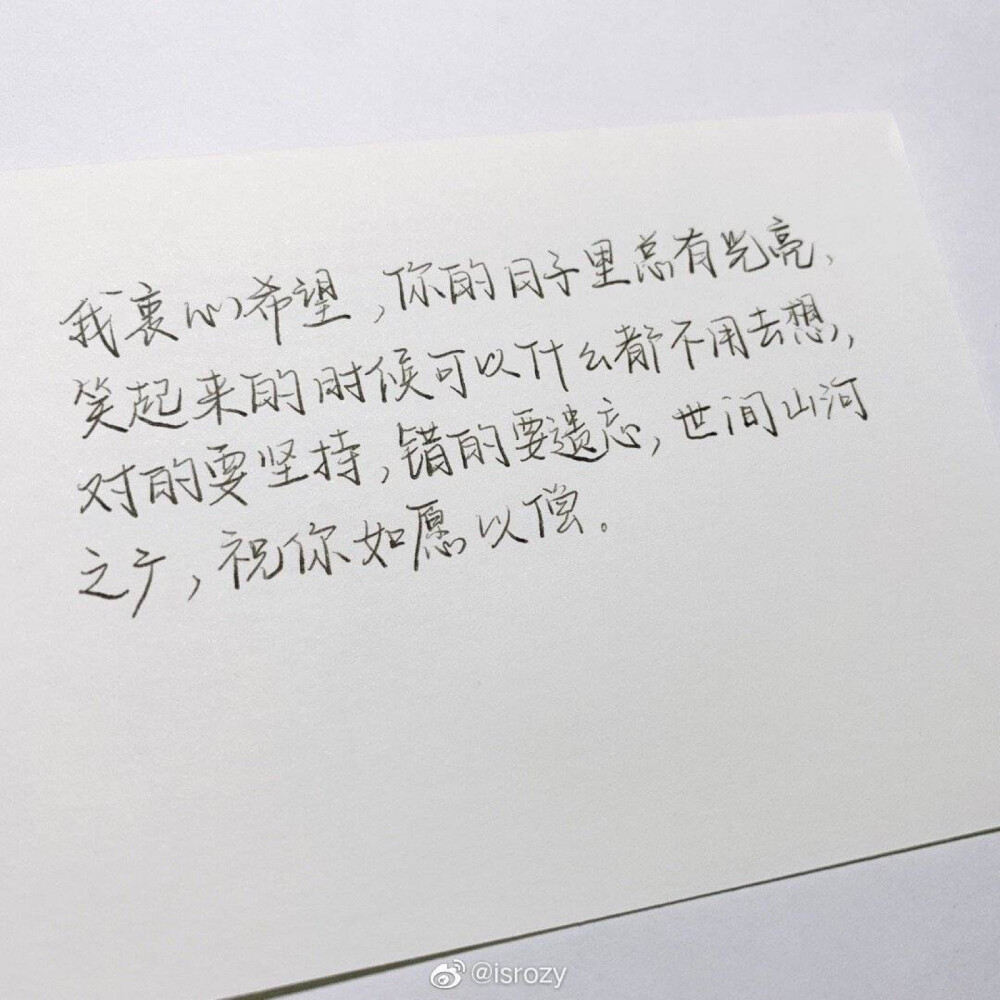 我衷心希望,你的日子里总有光亮、
笑起来的时候可以什么都不用去想,
对的要坚持,错的要遗忘,世间山河
之广,祝你如愿以偿。
@isrozy